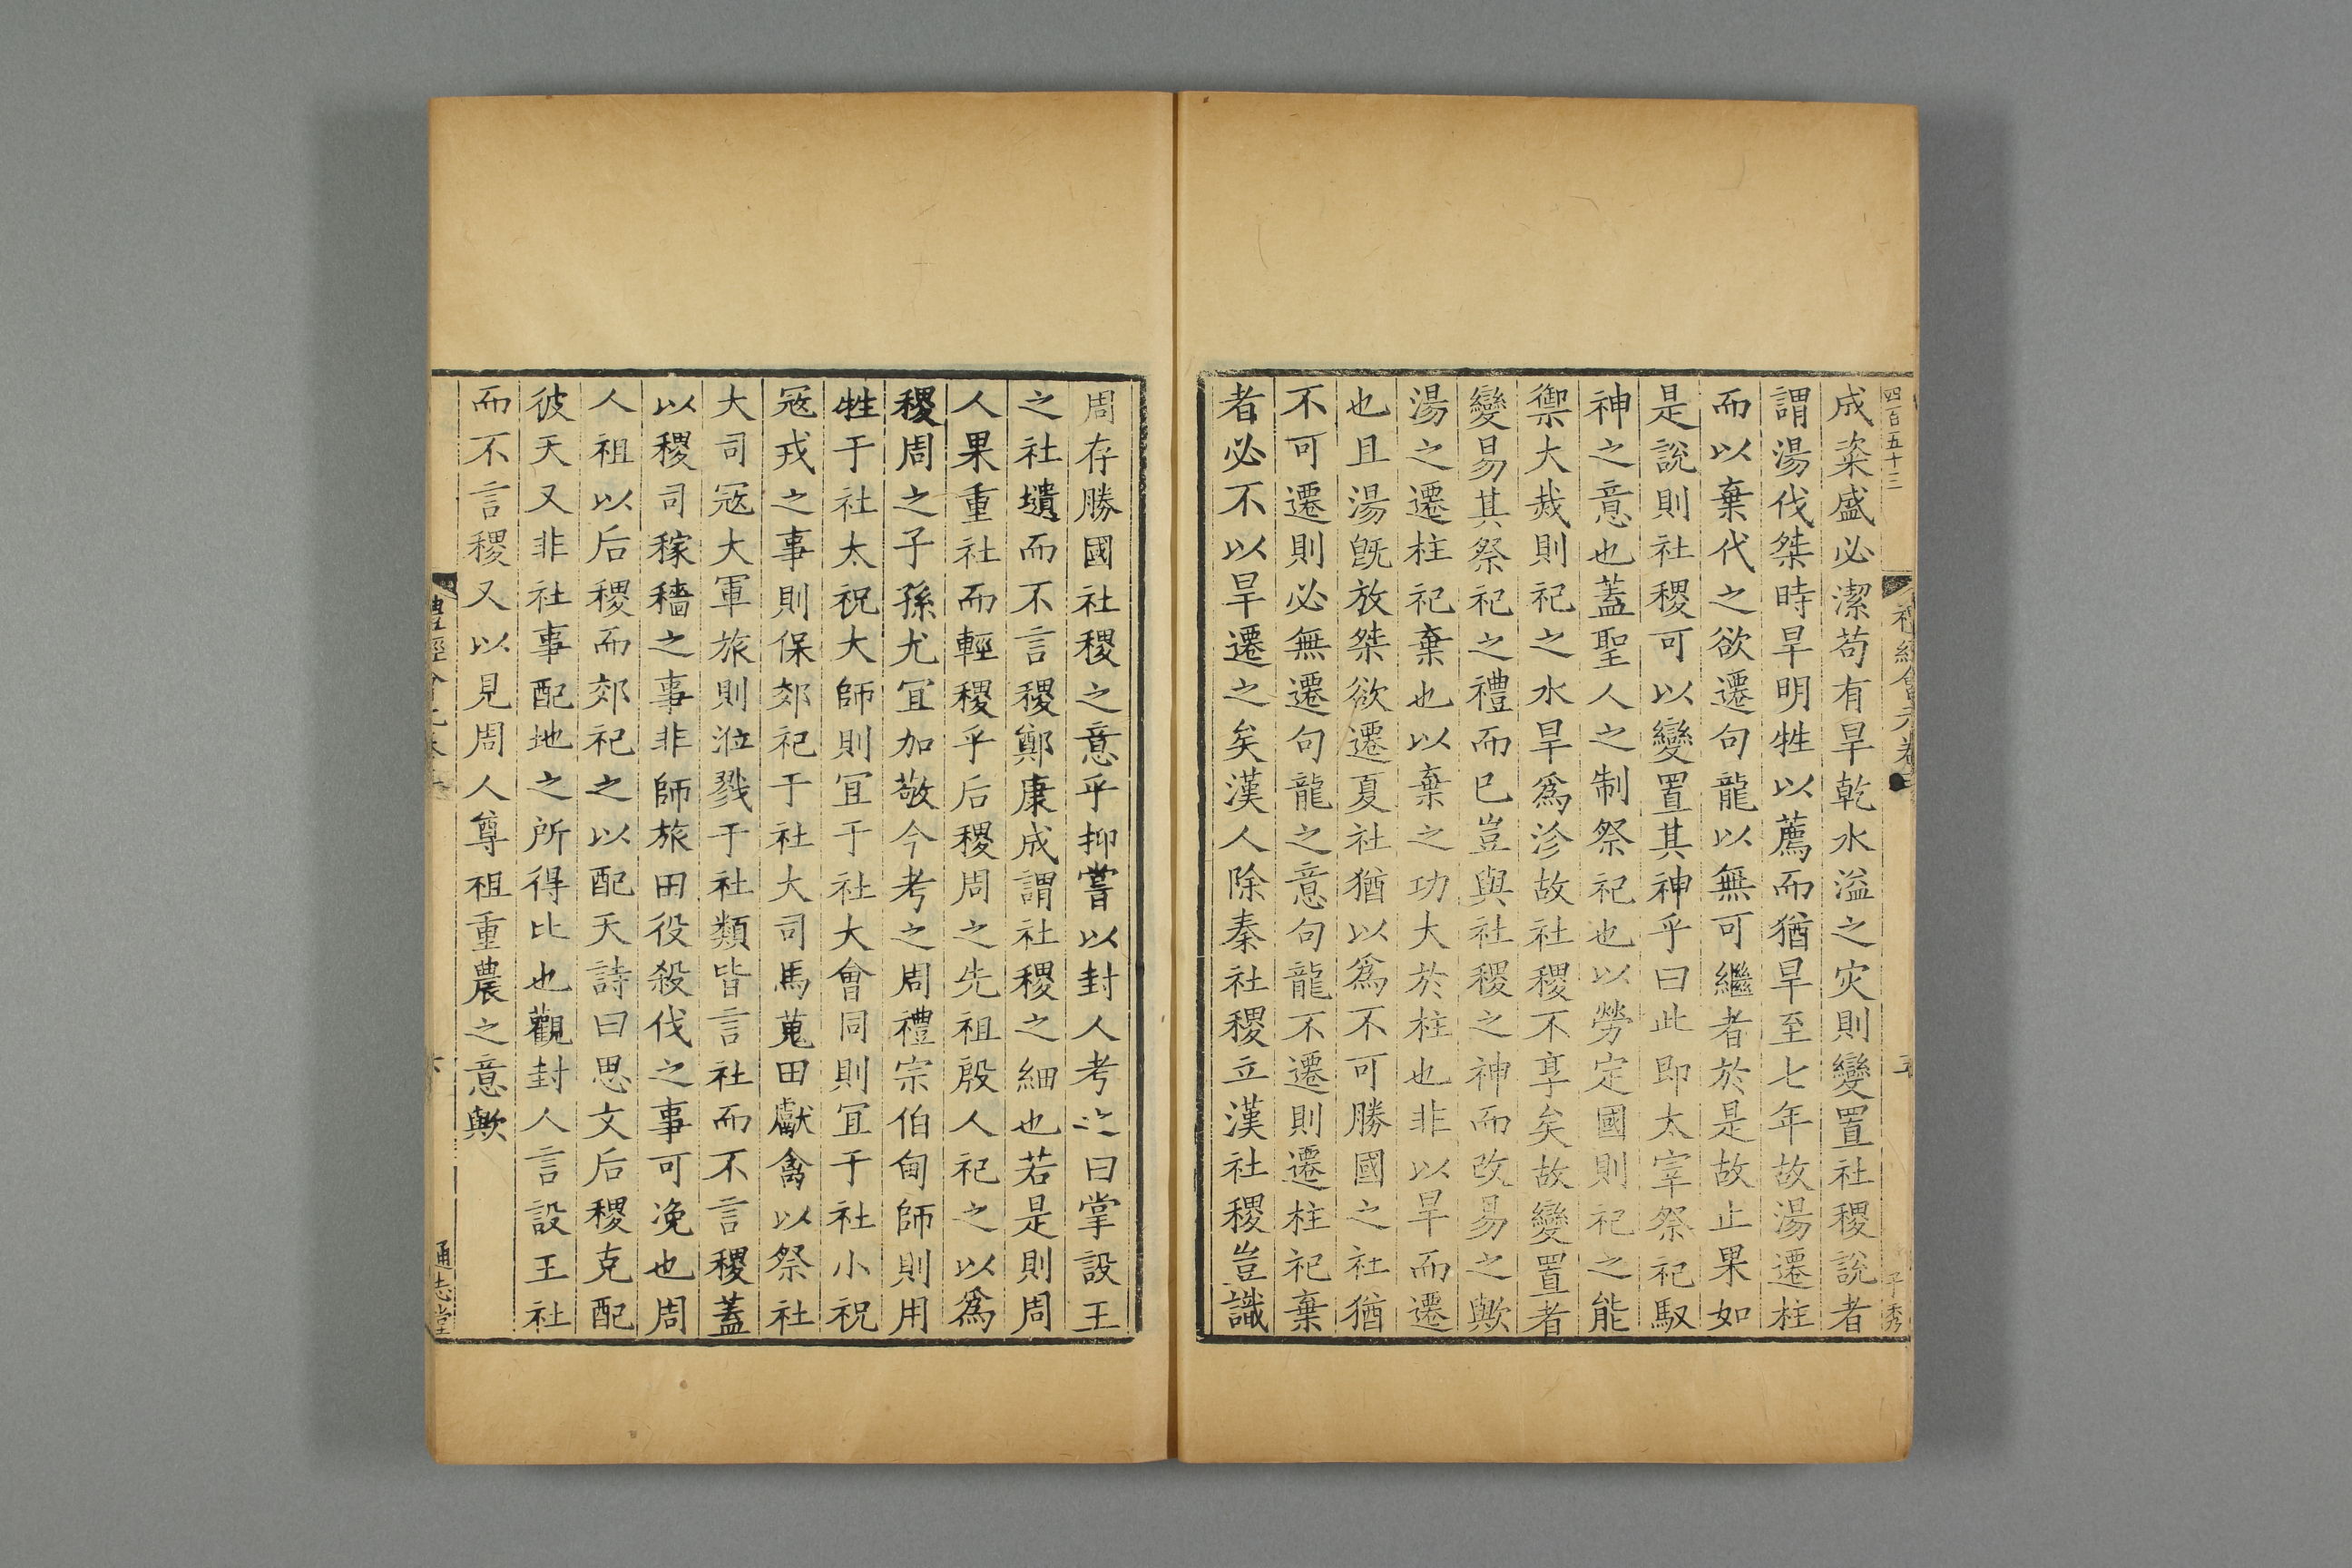 四百五十三
成粢盛必潔苟有旱乾水溢之灾則變置社稷說者
謂湯伐桀時旱明牲以薦而猶旱至七年故湯遷柱
而以棄代之欲遷句龍以無可繼者於是故止果如
是說則社稷可以變置其神乎曰此即太宰祭祀馭
神之意也蓋聖人之制祭祀也以勞定國則祀之能
禦大烖則祀之水旱爲沴故社稷不享矣故變置者
變易其祭祀之禮而已豈與社稷之神而改易之歟
湯之遷柱祀棄也以棄之功大於柱也非以旱而遷
也且湯旣放桀欲遷夏社猶以爲不可勝國之社猶
不可遷則必無遷句龍之意句龍不遷則遷柱祀棄
者必不以旱遷之矣漢人除秦社稷立漢社稷豈識
周存勝國社稷之意乎抑嘗以封人考之曰掌設王
之社壝而不言稷鄭康成謂社稷之細也若是則周
人果重社而輕稷乎后稷周之先祖殷人祀之以爲
稷周之子孫尤宜加敬今考之周禮宗伯甸師則用
牲于社太祝大師則宜于社大會同則宜于社小祝
冦戎之事則保郊祀于社大司馬蒐田獻禽以祭社
大司冦大軍旅則涖戮于社類皆言社而不言稷蓋
以稷司稼穡之事非師旅田役殺伐之事可凂也周
人祖以后稷而郊祀之以配天詩曰思文后稷克配
彼天又非社事配地之所得比也觀封人言設王社
而不言稷又以見周人尊祖重農之意歟
通志堂